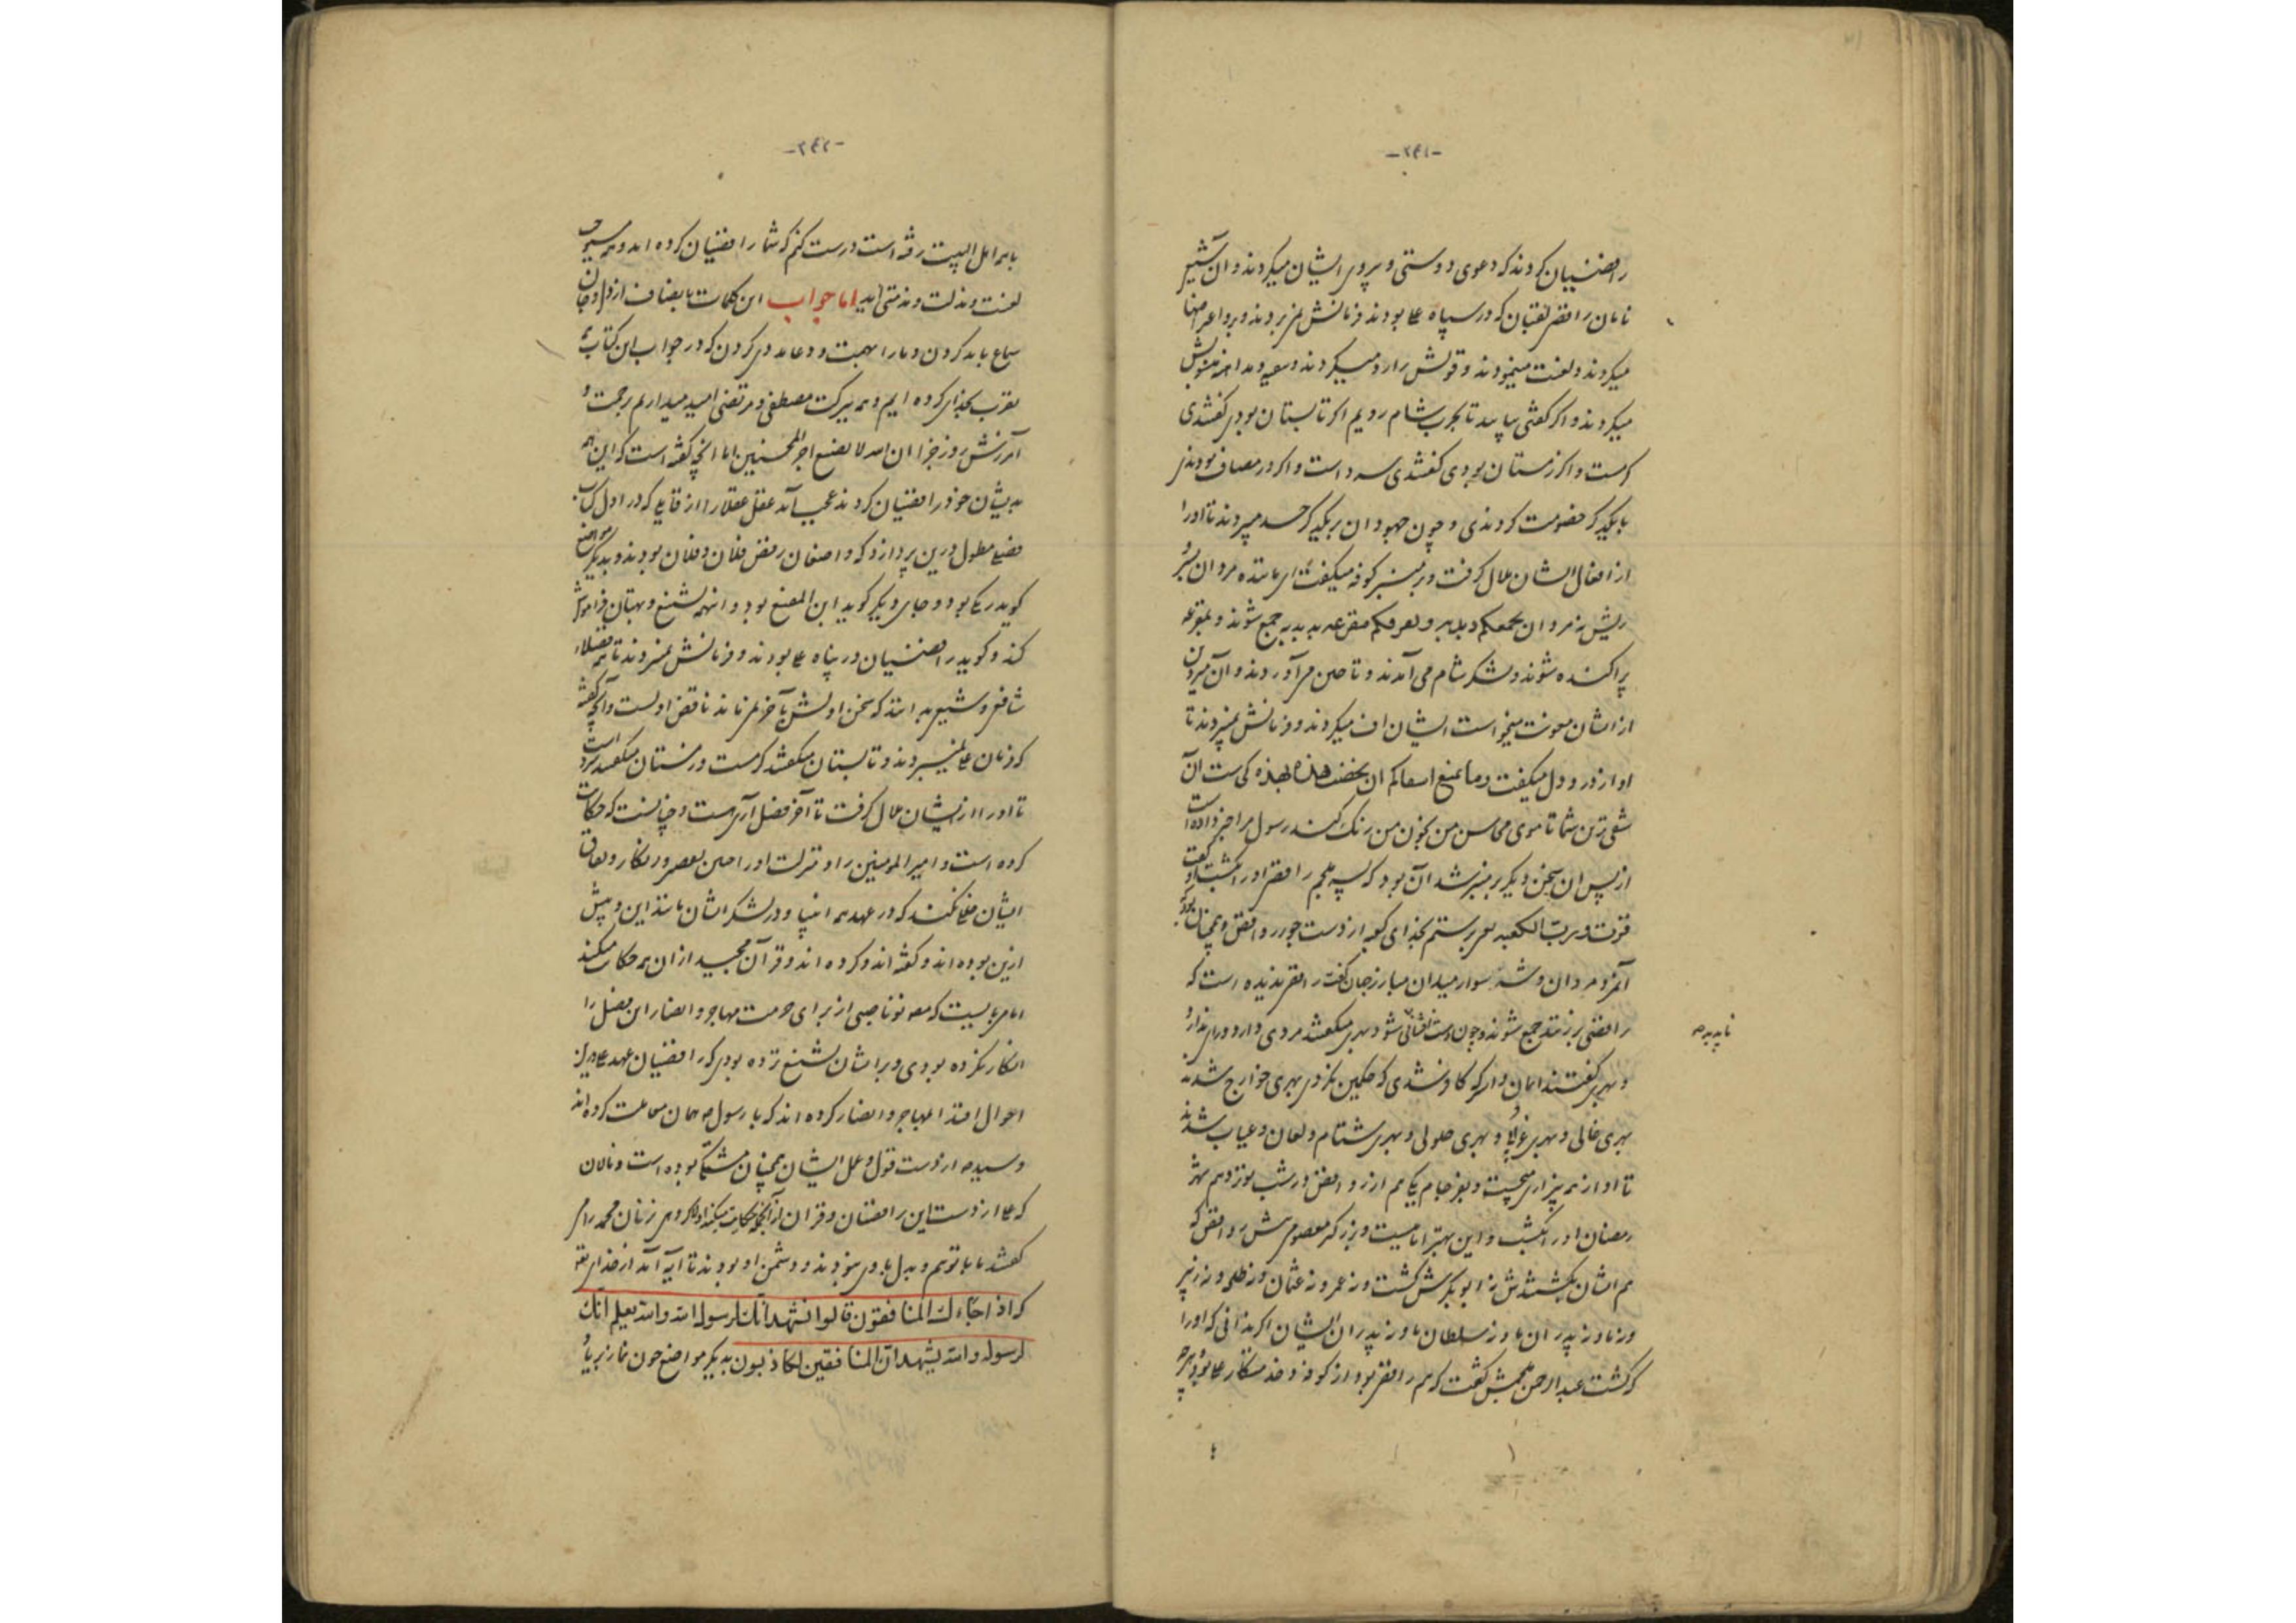 -۲۴۱-
رافضیان کردند که دعوی دوستی و پیروی ایشان میکردند و آن شیر
نامان رافضی لقبان که در سپاه علی بودند فرمانش نمی بردند و برو اعتراضها
میکردند و لعنت مینمودند و قولش را رد میکردند و
میکردند و اگر گفتی بیایید تا بحرب شام رویم اگر تابستان بودی گفتندی
گرمست و اگر زمستان بودی گفتندی سرد است و اگر در مصاف بودندی
با یکدیگر خصومت کردندی و چون جهودان بر یکدیگر حسد میبردند تا او را
از افعال ایشان ملال گرفت و بر منبر کوفه میگفت ای ماننده مردان بشر
ریش نه مردان یجمعکم و یفرقکم مقرعه به بدبه جمع شوند و بمقرعه
پراکنده شوند و لشکر شام می آمدند و تاختن می آوردند و آن میر دین
از ایشان معونت میخواست ایشان اف میکردند و فرمانش نمیبردند تا
او از درد دل میگفت و ما یمنع اشقاکم ان یخضب هذه بهذه کی است آن
شقی ترین شما تا موی محاسن من بخون من رنگ کند رسول مرا خبر داده است
از پس آن سخن دیگر بر منبر نشد آن بود که پسر ملجم رافضی او را بکشت و او گفت
فزت و رب الکعبه یعنی برستم بخدای کعبه از دست جور روافض و همچنان بود که
آنمرد مردان و شه سوار میدان مبارز جان گفت رافضی ندیده است که
رافضی برنتند جمع شوند و چون دست افشانی شود بهری میگفتند مردی دارد و رای ندارد
ناپدید صه
و بهری گفتند ایمان دارد که کافر نشدی که حکمین نکردی بهری خوارج شدند
بهری غالی و بهری غولا و بهری حلولی و بهری شتام و لعان و عیاب شدند
تا او از همه بیزاری میجست و بفرجام یکی هم از روافض در شب نوزدهم شهر
رمضان او را بکشت و این بهترامامیست و بزرگتر معصومی ش روافض که
هم ایشان بکشتندش نه ابوبکرش کشت و نه عمر و نه عثمان و نه طلحه و نه زبیر
و نه ما و نه پدران ما و نه سلطان ما و نه پدران ایشان اگر ندانی که او را
که کشت عبد الرحمن ملجمش کشت که هم رافضی بود از کوفه و خدمتکار علی بود و هرچه
با
-۲۴۲-
با همه اهل البیت رفته است درست کنم که شما رافضیان کرده اند و همه مستوجب
لعنت و مذلت و مذمتی اید اما جواب این کلمات بانصاف از دل و جان
سماع باید کردن و ما را بهمت و دعا مدد کردن که در جواب این کتاب
تقرب بخدای کرده ایم و همه ببرکت مصطفی و مرتضی امید میداریم رحمت و
آمرزش روز جزا ان الله لا یضیع اجر المحسنین اما آنچه گفته است که این همه
بدیشان خود رافضیان کردند عجب آید عقل عقلا را از قایلی که در اول کتاب
فصلی مطول درین پردازد که واضعان رفض فلان و فلان بودند و بدیگر مواضع
گوید بود و جای دیگر گوید ابن المقنع بود و آنهمه تشنیع و بهتان فراموش
کند و گوید رافضیان در سپاه علی بودند و فرمانش نمیبردند تا همه فضلاء
شافعی و شیعی بدانند که سخن اولش بآخر نمیماند ناقض اولست و آنچه گفته است
که فرمان علی نمیبردند و تابستان میگفتند گرمست و زمستان میگفتند سرد
تا او را از ایشان ملال گرفت تا آخر فصل آری راست و چنانست که حکایت
کرده است و امیر المؤمنین را و منزلت او را نقصی و انکار و نفاق
ایشان خللی نکند که در عهد همه انبیا و در لشکر ایشان مانند این و بیش
ازین بوده اند و گفته اند و کرده اند و قرآن مجید از آن همه حکایت میکند
اما می بایست که مصنف ناصبی از برای حرمت مهاجر و انصار این فصل را
انکار نکرده بودی و بر ایشان تشنیع نزده بودی که رافضیان عهد علی در این
احوال اقتدا بمهاجر و انصار کرده اند که با رسول صه همان معاملت کرده اند
و سید صه از دست قول و عمل ایشان همچنان متشکی بوده است و نالان
که علی از دست این رافضیان و قرآن از آنجمله حکایت میکند اولا گروهی زنان محمد را می
گفتند ما با توئیم و بدل با وی نبودند و دشمن او بودند تا آیه آمد از خدای تعه
که اذا جاءك المنافقون قالوا نشهد انك لرسول الله والله یعلم انك
لرسوله والله یشهد ان المنافقین لکاذبون بدیگر مواضع چون نماز بریا